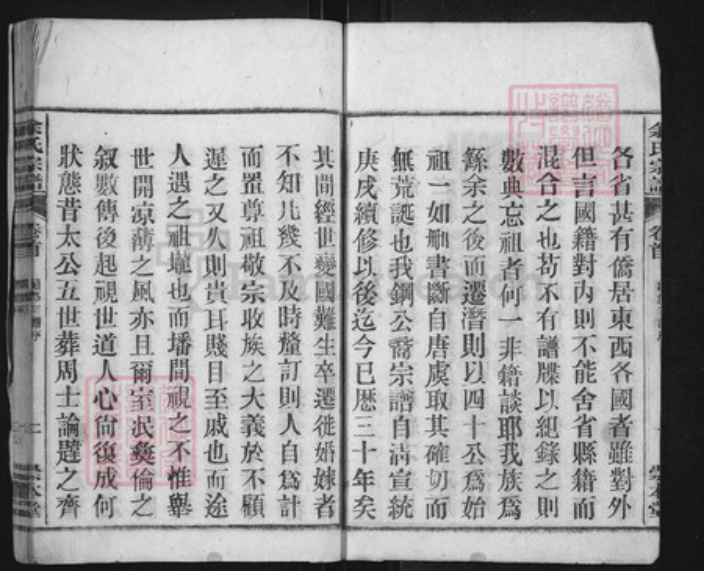 各省甚有僑居東西各國者雖對外
但言國籍對內則不能舍省縣籍而
混合之也苟不有譜牒以紀錄之則
數典忘祖者何一非籍談耶我族爲
繇余之後而遷潛則以四十公爲始
祖一如刪書斷自唐虞取其確切而
無荒誕也我鋼公裔宗譜自清宣統
庚戌續修以後迄今已歷三十年矣
余氏宗譜
卷首
崇本堂
其間經世變國難生卒遷徙婚嫁者
不知凡幾不及時釐訂則人自爲計
而置尊祖敬宗收族之大義於不顧
遲之又久則貴耳賤目至戚也而途
人遇之祖壠也而墦間視之不惟舉
世開凉薄之風亦且爾室泯彝倫之
叙數傳後起視世道人心尙復成何
狀態昔太公五世葬周士論韙之齊
余氏宗譜
卷首
崇本堂